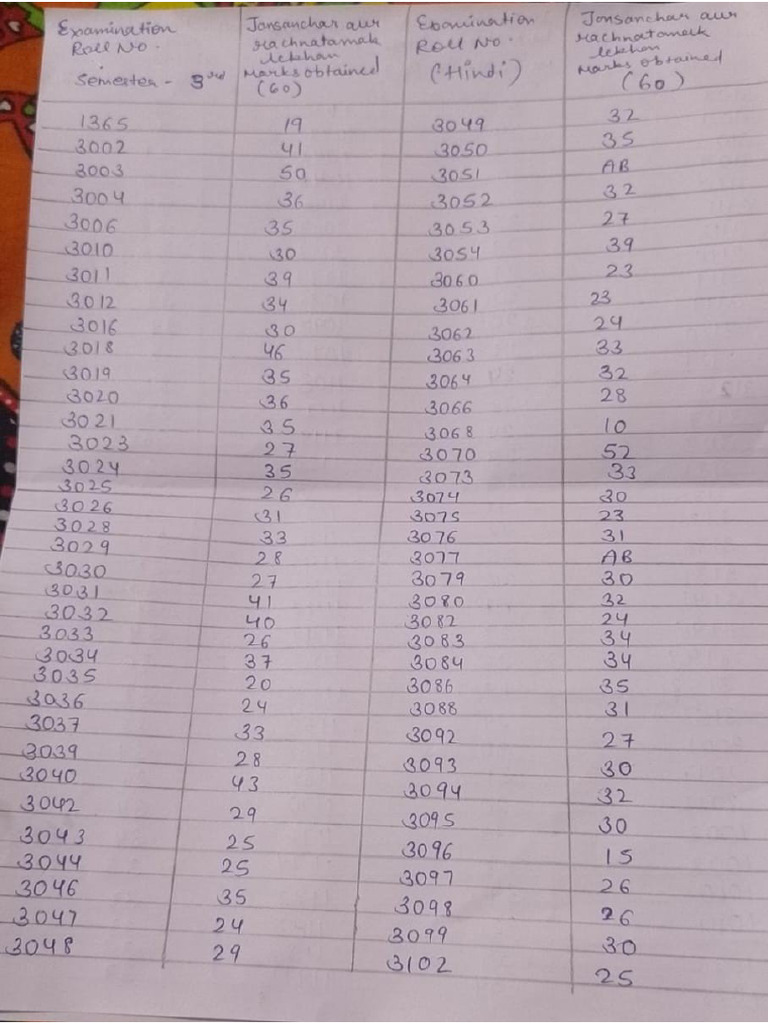 Examination Roll No. Jansanchar aur rachnatamak lekhan Marks obtained (60) Examination Roll No. (Hindi) Jansanchar aur rachnatamak lekhan Marks obtained (60)
Semester - 3rd
1365 19 3049 32
3002 41 3050 35
3003 50 3051 AB
3004 36 3052 32
3006 35 3053 27
3010 30 3054 39
3011 39 3060 23
3012 34 3061 23
3016 30 3062 24
3018 46 3063 33
3019 35 3064 32
3020 36 3066 28
3021 35 3068 10
3023 27 3070 52
3024 35 3073 33
3025 26 3074 30
3026 31 3075 23
3028 33 3076 31
3029 28 3077 AB
3030 27 3079 30
3031 41 3080 32
3032 40 3082 24
3033 26 3083 34
3034 37 3084 34
3035 20 3086 35
3036 24 3088 31
3037 33 3092 27
3039 28 3093 30
3040 43 3094 32
3042 29 3095 30
3043 25 3096 15
3044 25 3097 26
3046 35 3098 26
3047 24 3099 30
3048 29 3102 25